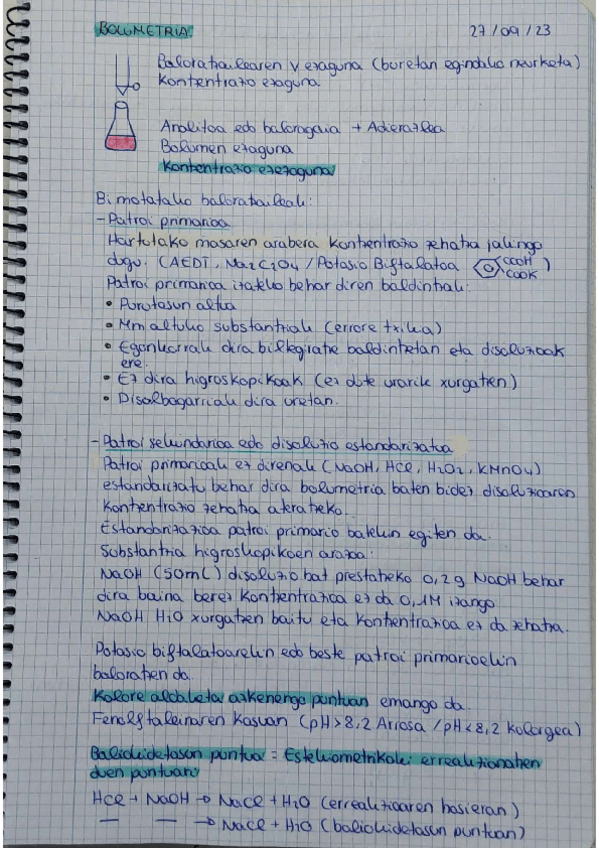 BOLUMETRIA
27/09/23
Baloratzailearen V ezaguna (buretan egindako neurketa)
Kontzentrazio ezaguna
Analitoa edo baloragaia + Adierazlea
Bolumen ezaguna
Kontzentrazio ezezaguna
Bi motatako baloratzaileak:
- Patroi primarioa
Hartutako masaren arabera kontzentrazio zehatza jakingo
dugu. (AEDT, Na2C2O4 / Potasio Biftalatoa COOH
COOK )
Patroi primarioa izateko behar diren baldintzak:
• Purutasun altua
• Mm altuko substantziak (errore txikia)
• Egonkorrak dira biltegiratze baldintzetan eta disoluzioak
ere.
• Ez dira higroskopikoak (ez dute urarik xurgatzen)
• Disolbagarriak dira uretan.
- Patroi sekundarioa edo disoluzio estandarizatua
Patroi primarioak ez direnak (NaOH, HCl, H2O2, KMnO4)
estandarizatu behar dira bolumetria baten bidez disoluzioaren
kontzentrazio zehatza ateratzeko.
Estandarizazioa patroi primario batekin egiten da.
Substantzia higroskopikoen arazoa:
NaOH (50mL) disoluzio bat prestatzeko 0,2g NaOH behar
dira baina berez kontzentrazioa ez da 0,1M izango
NaOH H2O xurgatzen baitu eta kontzentrazioa ez da zehatza.
Potasio biftalatoarekin edo beste patroi primarioekin
baloratzen da.
Kolore aldaketa azkenengo puntuan emango da.
Fenolftaleinaren kasuan (pH>8,2 Arrosa / pH<8,2 kolorgea)
Baliokidetasun puntua = Estekiometrikoki erreakzionatzen
duen puntuan
HCl + NaOH → NaCl + H2O (erreakzioaren hasieran)
— — → NaCl + H2O (baliokidetasun puntuan)